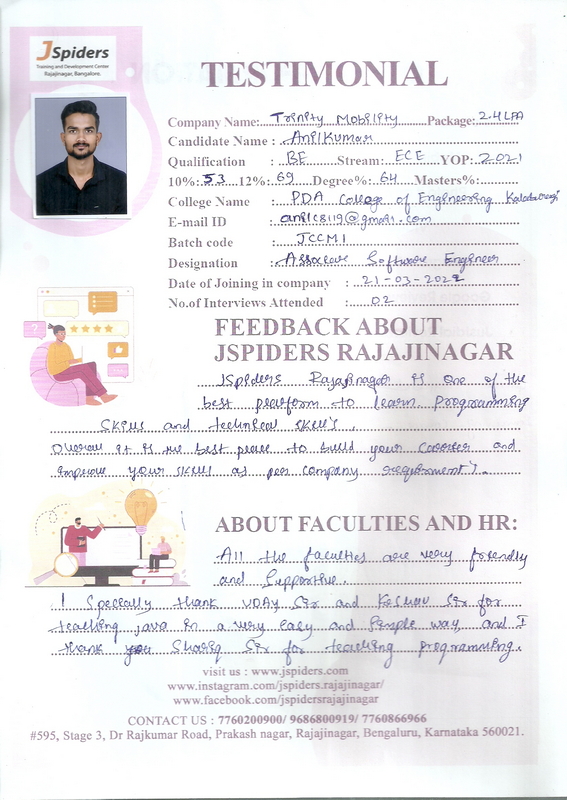 JSpiders
Training and Development Center
Rajajinagar, Bangalore.
TESTIMONIAL
Company Name: Trinity Mobility Package: 2.4 LPA
Candidate Name : Anilkumar
Qualification : BE Stream: ECE YOP: 2021
10%: 53 12%: 69 Degree%: 64 Masters%:
College Name : PDA College of Engineering
E-mail ID : anilc8119@gmail.com
Batch code : JCCM1
Designation : Associate Software Engineer
Date of Joining in company : 21-03-2022
No.of Interviews Attended : 02
FEEDBACK ABOUT
JSPIDERS RAJAJINAGAR
Jspiders Rajajinagar is one of the
best platform to learn programming
skills and technical skills.
Overall it is the best place to build your career and
improve your skills as per company requirement's.
ABOUT FACULTIES AND HR:
All the faculties are very friendly
and supportive.
I specially thank UDAY Sir and Keshav Sir for
teaching java in a very easy and simple way, and I
thank you Shariq Sir for teaching programming.
visit us : www.jspiders.com
www.instagram.com/jspiders.rajajinagar/
www.facebook.com/jspidersrajajinagar
CONTACT US : 7760200900/ 9686800919/ 7760866966
#595, Stage 3, Dr Rajkumar Road, Prakash nagar, Rajajinagar, Bengaluru, Karnataka 560021.